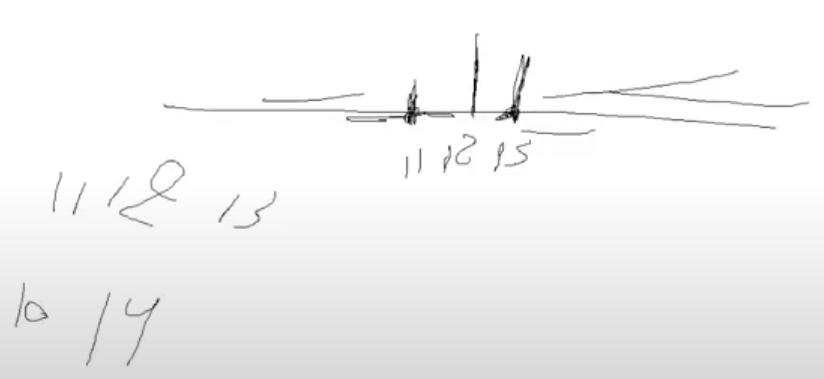 11 12 13
11 12 13
10 14